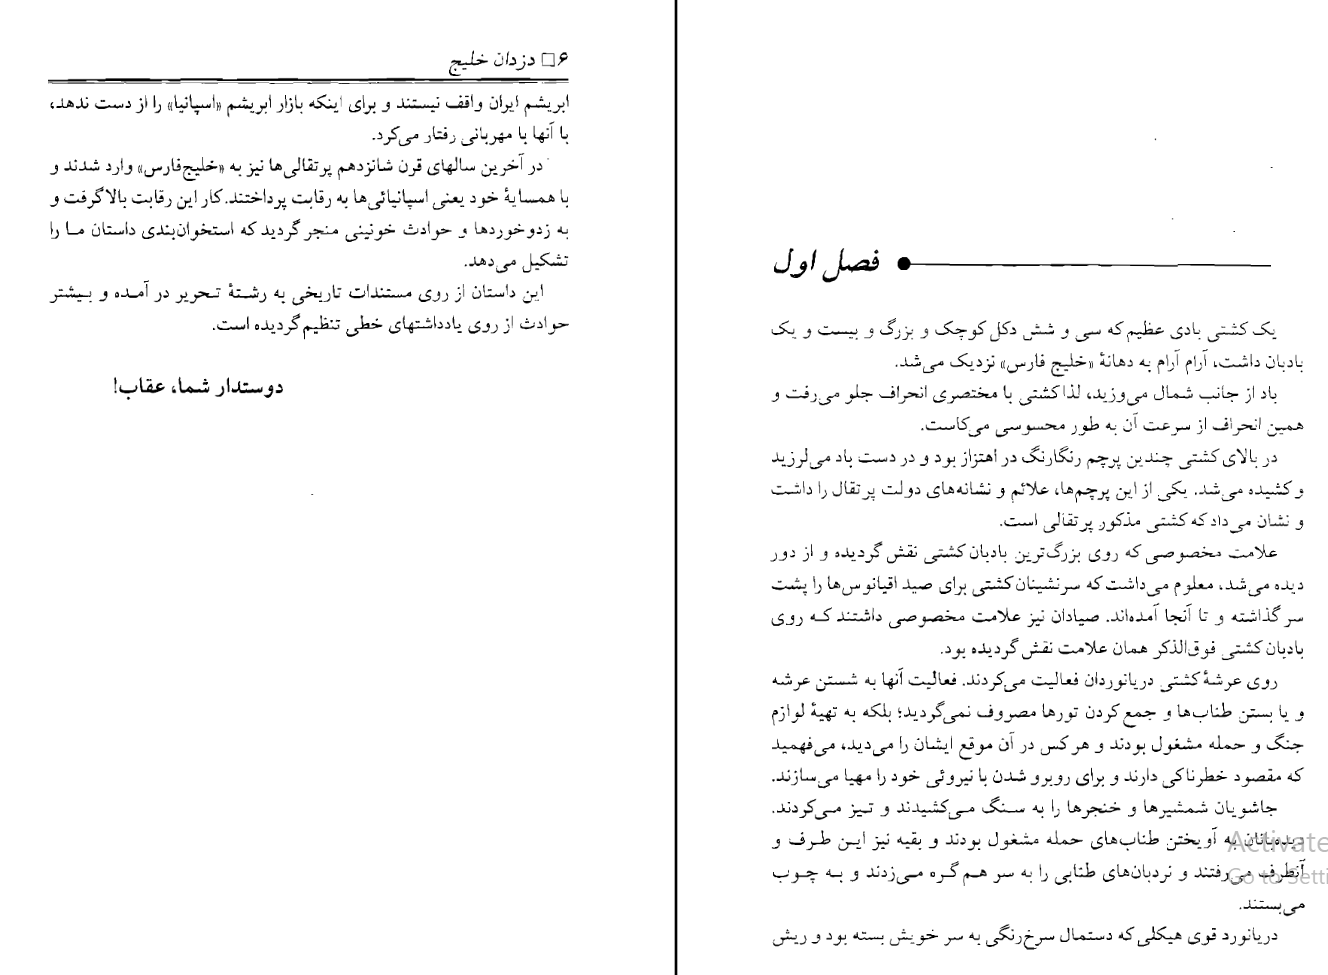 ۶ □ دزدان خلیج
ابریشم ایران واقف نیستند و برای اینکه بازار ابریشم «اسپانیا» را از دست ندهد،
با آنها با مهربانی رفتار می‌کرد.
در آخرین سالهای قرن شانزدهم پرتقالی‌ها نیز به «خلیج‌فارس» وارد شدند و
با همسایهٔ خود یعنی اسپانیائی‌ها به رقابت پرداختند. کار این رقابت بالا گرفت و
به زدوخوردها و حوادث خونینی منجر گردید که استخوان‌بندی داستان ما را
تشکیل می‌دهد.
این داستان از روی مستندات تاریخی به رشتهٔ تحریر در آمده و بیشتر
حوادث از روی یادداشتهای خطی تنظیم گردیده است.
دوستدار شما، عقاب!
فصل اول
یک کشتی بادی عظیم که سی و شش دکل کوچک و بزرگ و بیست و یک
بادبان داشت، آرام آرام به دهانهٔ «خلیج فارس» نزدیک می‌شد.
باد از جانب شمال می‌وزید، لذا کشتی با مختصری انحراف جلو می‌رفت و
همین انحراف از سرعت آن به طور محسوسی می‌کاست.
در بالای کشتی چندین پرچم رنگارنگ در اهتزاز بود و در دست باد می‌لرزید
و کشیده می‌شد. یکی از این پرچم‌ها، علائم و نشانه‌های دولت پرتقال را داشت
و نشان می‌داد که کشتی مذکور پرتقالی است.
علامت مخصوصی که روی بزرگ‌ترین بادبان کشتی نقش گردیده و از دور
دیده می‌شد، معلوم می‌داشت که سرنشینان کشتی برای صید اقیانوس‌ها را پشت
سر گذاشته و تا آنجا آمده‌اند. صیادان نیز علامت مخصوصی داشتند که روی
بادبان کشتی فوق‌الذکر همان علامت نقش گردیده بود.
روی عرشهٔ کشتی دریانوردان فعالیت می‌کردند. فعالیت آنها به شستن عرشه
و یا بستن طناب‌ها و جمع کردن تورها مصروف نمی‌گردید؛ بلکه به تهیهٔ لوازم
جنگ و حمله مشغول بودند و هر کس در آن موقع ایشان را می‌دید، می‌فهمید
که مقصود خطرناکی دارند و برای روبرو شدن با نیروئی خود را مهیا می‌سازند.
جاشویان شمشیرها و خنجرها را به سنگ می‌کشیدند و تیز می‌کردند.
دیده‌بانان به آویختن طناب‌های حمله مشغول بودند و بقیه نیز این طرف و
آنطرف می‌رفتند و نردبان‌های طنابی را به سر هم گره می‌زدند و به چوب
می‌بستند.
دریانورد قوی هیکلی که دستمال سرخ‌رنگی به سر خویش بسته بود و ریش
Activate
Go to Setti